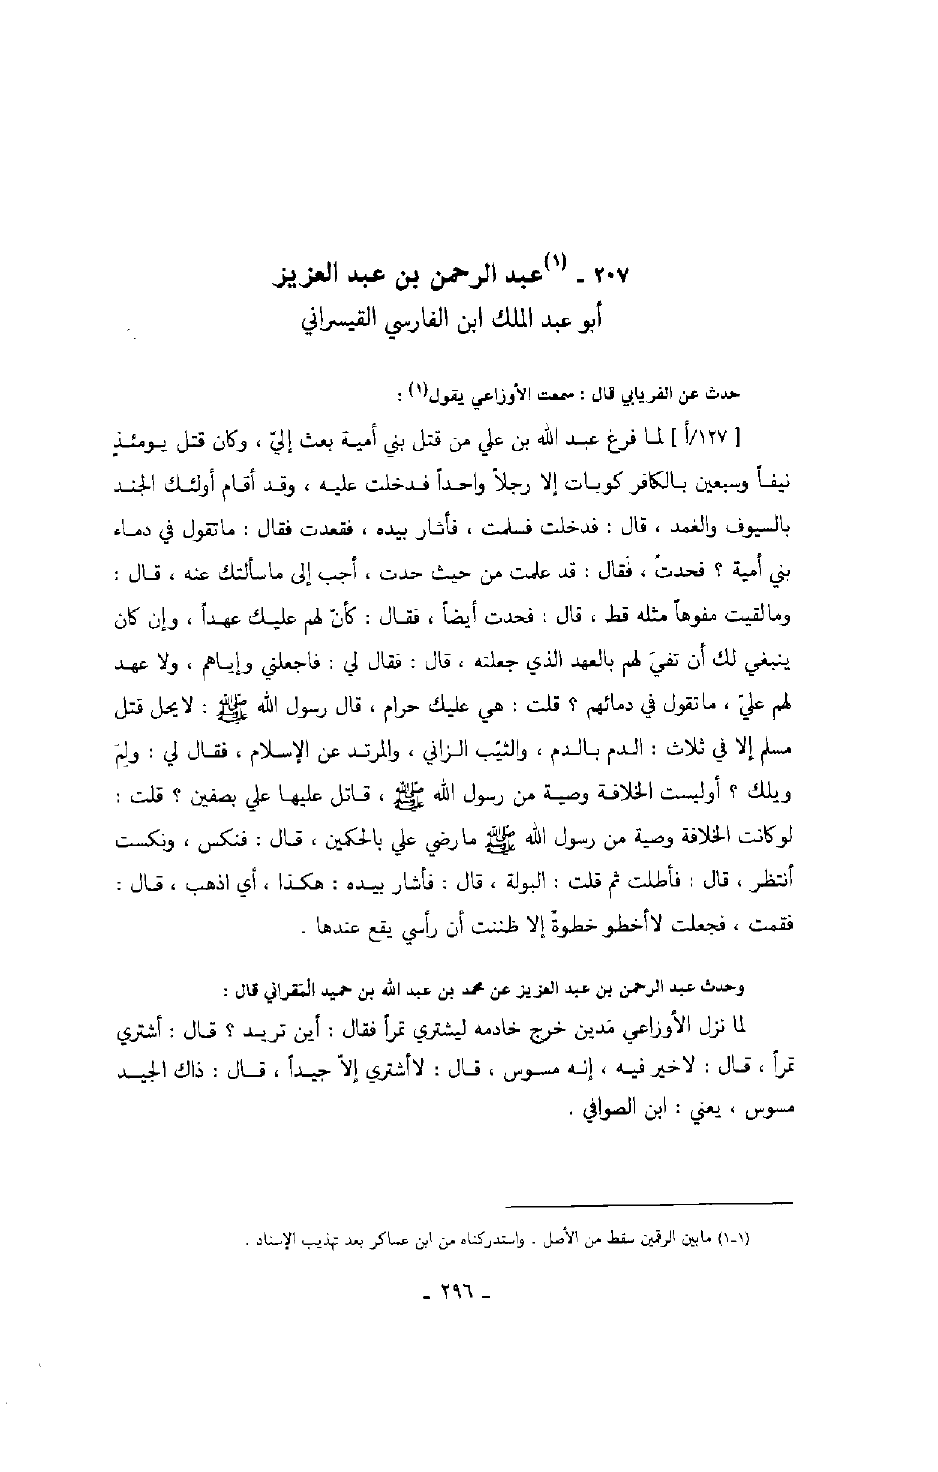 ٢٠٧ ـ (١)عبد الرحمن بن عبد العزيز
أبو عبد الملك ابن الفارسي القيسراني
حدث عن الفريابي قال : سمعت الأوزاعي يقول(١) :
[ ١٢٧/أ ] لما فرغ عبد الله بن علي من قتل بني أمية بعث إليّ ، وكان قتل يومئذٍ
نيفاً وسبعين بالكافر كوبات إلا رجلاً واحداً فدخلت عليه ، وقد أقام أولئك الجند
بالسيوف والعمد ، قال : فدخلت فسلمت ، فأشار بيده ، فقعدت فقال : ماتقول في دماء
بني أمية ؟ فحدتُ ، فقال : قد علمت من حيث حدت ، أجب إلى ماسألتك عنه ، قال :
ومالقيت مفوهاً مثله قط ، قال : فحدت أيضاً ، فقال : كأنّ لهم عليك عهداً ، وإن كان
ينبغي لك أن تفيَ لهم بالعهد الذي جعلته ، قال : فقال لي : فاجعلني وإياهم ، ولا عهد
لهم عليّ ، ماتقول في دمائهم ؟ قلت : هي عليك حرام ، قال رسول الله ﷺ : لايحل قتل
مسلم إلا في ثلاث : الدم بالدم ، والثيّب الزاني ، والمرتد عن الإسلام ، فقال لي : ولِمَ
ويلك ؟ أوليست الخلافة وصية من رسول الله ﷺ ، قاتل عليها علي بصفين ؟ قلت :
لوكانت الخلافة وصية من رسول الله ﷺ مارضي علي بالحكمين ، قال : فنكس ، ونكست
أنتظر ، قال : فأطلت ثم قلت : البولة ، قال : فأشار بيده : هكذا ، أي اذهب ، قال :
فقمت ، فجعلت لاأخطو خطوةً إلا ظننت أن رأسي يقع عندها .
وحدث عبد الرحمن بن عبد العزيز عن محمد بن عبد الله بن حميد المقراني قال :
لما نزل الأوزاعي مَدين خرج خادمه ليشتري تمراً فقال : أين تريد ؟ قال : أشتري
تمراً ، قال : لاخير فيه ، إنه مسوس ، قال : لاأشتري إلاّ جيداً ، قال : ذاك الجيد
مسوس ، يعني : ابن الصوافي .
(١-١) مابين الرقمين سقط من الأصل . واستدركناه من ابن عساكر بعد تهذيب الإسناد .
ـ ٢٩٦ ـ